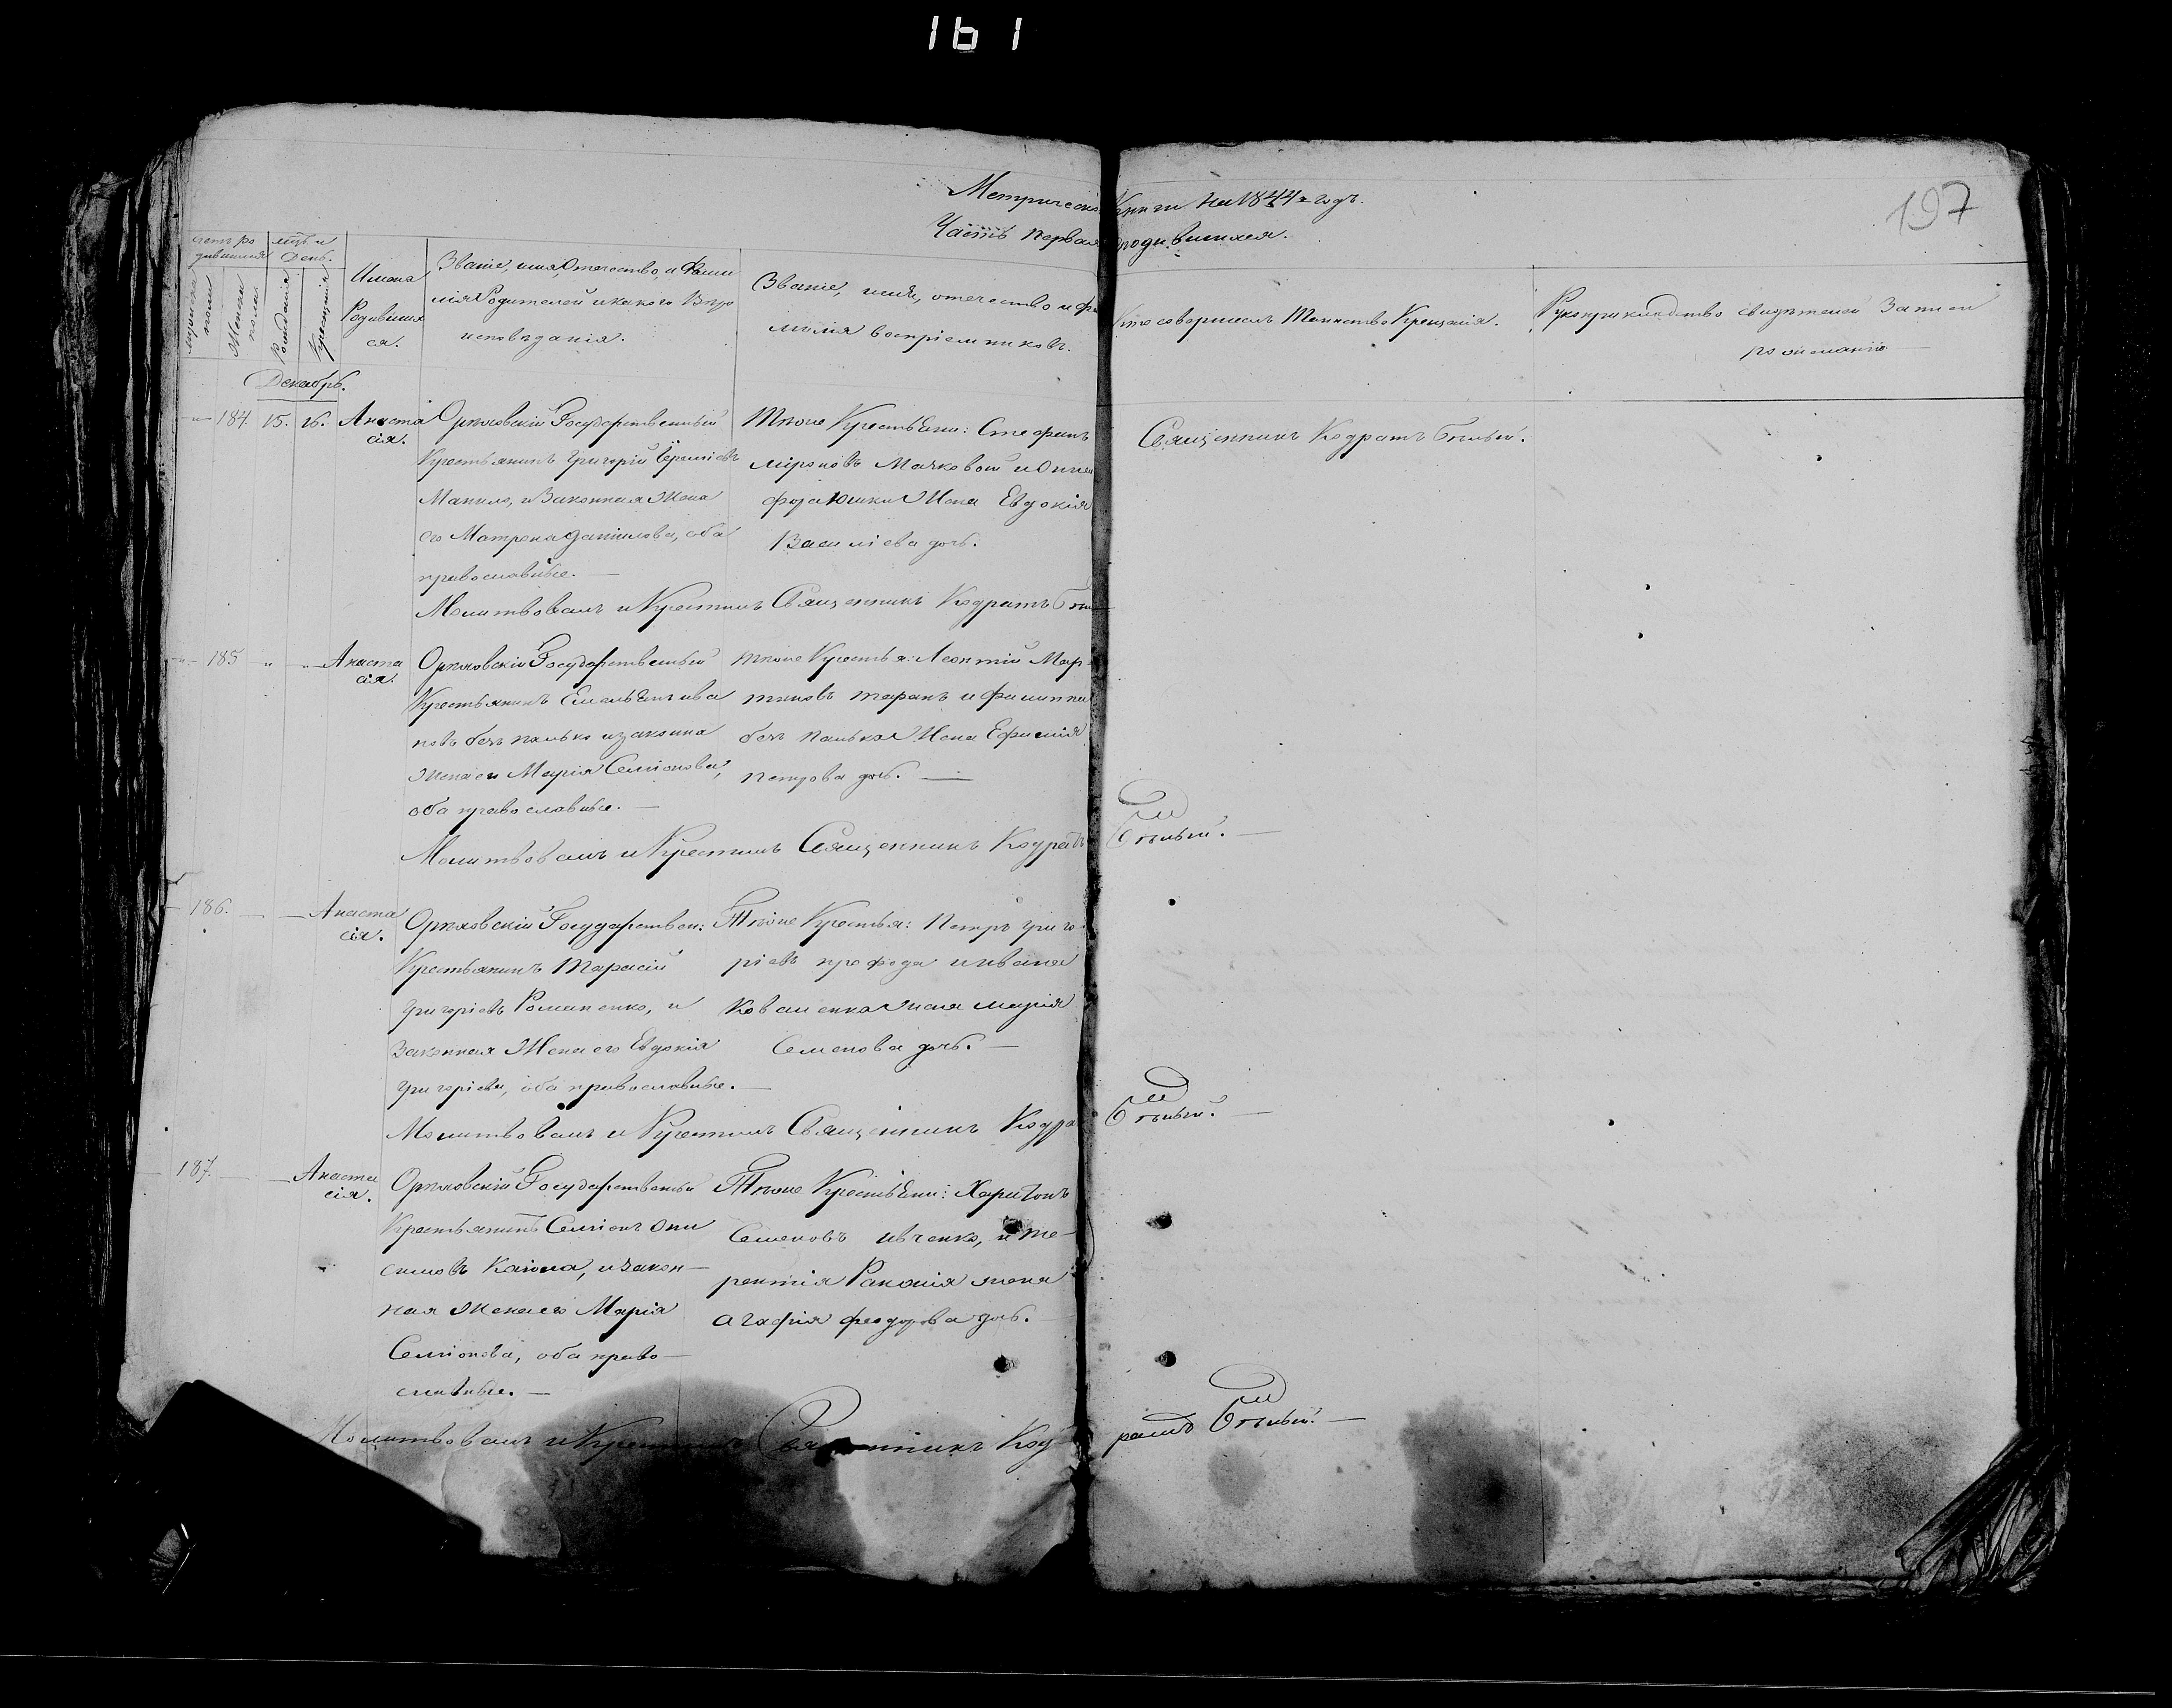 161
197
Метрической Книги на 1844й годъ.
Часть первая о родившихся.
счетъ ро
дившихся
мужеска
пола
Женска
пола
мѣць и
День.
Рожденія
Крещенія
Имена
Родивших
ся.
Званіе, имя, Отечество, и Фами
лія Родителей и какого Вѣро
исповѣданія.
Званіе, имя, отечество и фа
милія воспріемниковъ.
Кто совершалъ Таинство Крещенія.
Рукоприкладство свидѣтелей Записи
по желанію
Декабрь.
184. 15. 16. Анаста
сія.
Орѣховскій Государственный
Крестьянинъ Григорій
и Законная Жена
его Матрона Данилова, оба
православные.
Тѣже Крестьяни: Стефанъ
Мироновъ и
Жена Евдокія
Василіева дочь.
Молитвовалъ и Крестилъ Священникъ Кодратъ
Священникъ Кодратъ Бѣлый.
185 " " Анаста
сія.
Орѣховскій Государственный
Крестьянинъ Емельянъ Ива
новъ безъ палько и законна
Жена его Марія Семіонова,
оба православные.
Тѣже Крестья: Леонтій Мар
тиновъ таранъ и Филиппа
безъ палька Жена Ефимія
Петрова дочь.
Молитвовалъ и Крестилъ Священникъ Кодратъ
Бѣлый.
186. Анаста
сія.
Орѣховскій Государствен:
Крестьянинъ Тарасій
Григоріевъ Романенко, и
Законная Жена его Евдокія
Григоріева, оба православные.
Тѣже Крестья: Петръ Григо
ріевъ профода и Ивана
Коваленка жена Марія
Семенова дочь.
Молитвовалъ и Крестилъ Священникъ Кодра
Бѣлый.
187. Анаста
сія.
Орѣховскій Государственый
Крестьянинъ Семіонъ Они
симовъ и закон
ная Жена его Марія
Семіонова, оба право
славные.
Тѣже Крестьяни: Харитонъ
Семеновъ Ивченко, и Те
рентія жена
Агафія Феодорова дочь.
Молитвовалъ и Крестилъ Священникъ Код
ратъ Бѣлый.